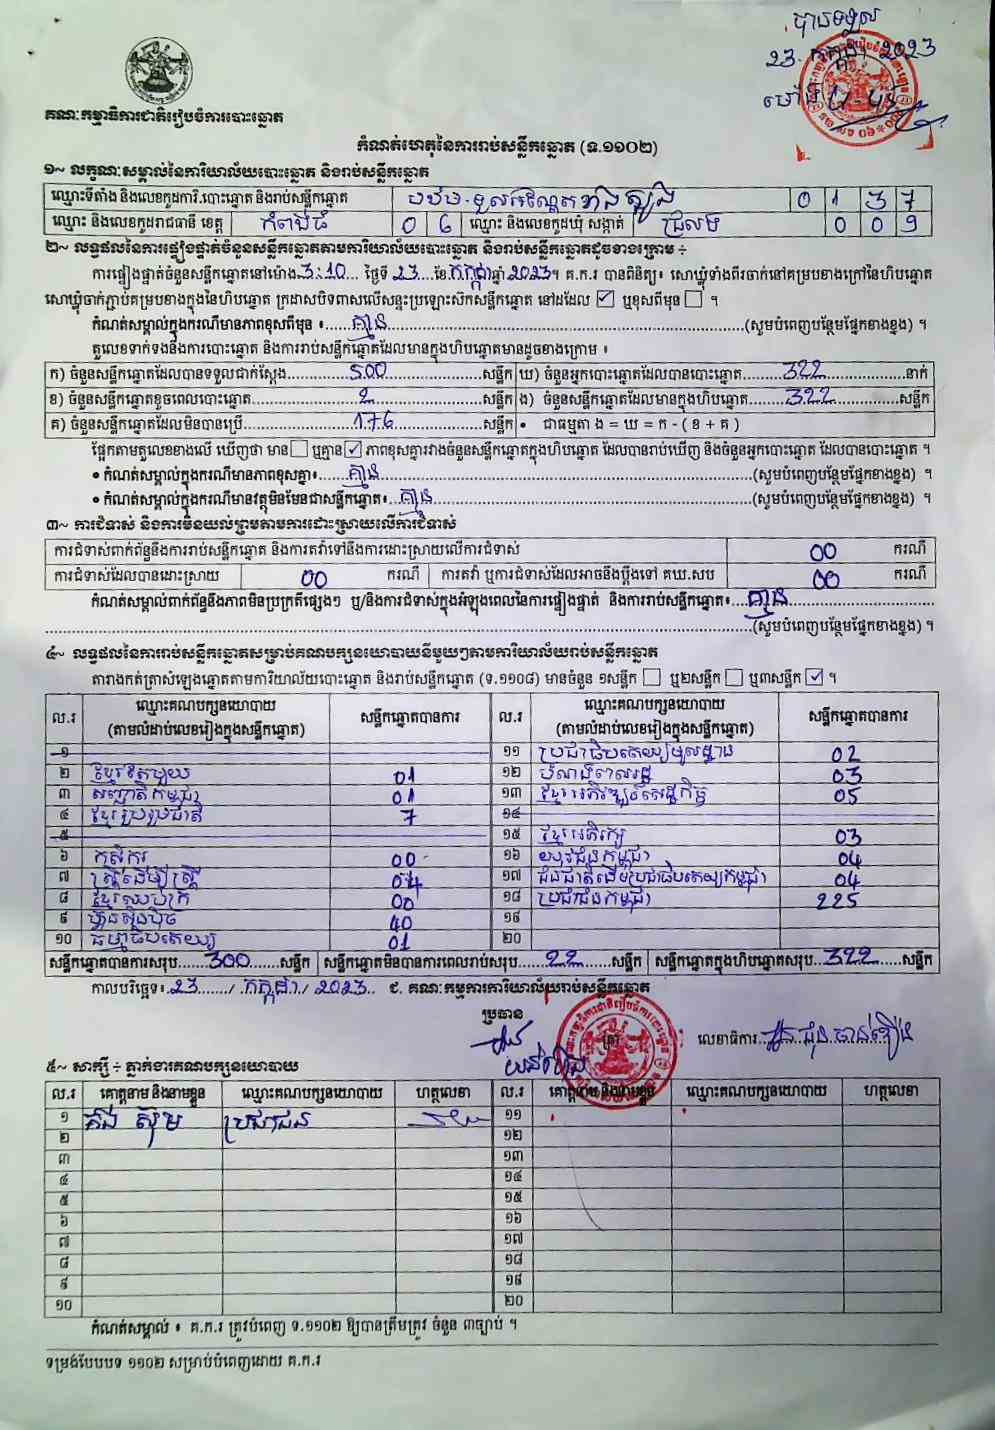 បានទទួល
23 កក្កដា 2023
ម៉ោង
គណៈកម្មាធិការជាតិរៀបចំការបោះឆ្នោត
កំណត់ហេតុនៃការរាប់សន្លឹកឆ្នោត (ទ.១១០២)
១~ លក្ខណៈសម្គាល់នៃការិយាល័យបោះឆ្នោត និងរាប់សន្លឹកឆ្នោត
ឈ្មោះទីតាំង និងលេខកូដការិ.បោះឆ្នោត និងរាប់សន្លឹកឆ្នោត 0 1 3 7
ឈ្មោះ និងលេខកូដរាជធានី ខេត្ត កំពង់ធំ 0 6 ឈ្មោះ និងលេខកូដឃុំ សង្កាត់ 0 0 9
២~ លទ្ធផលនៃការផ្ទៀងផ្ទាត់ចំនួនសន្លឹកឆ្នោតតាមការិយាល័យបោះឆ្នោត និងរាប់សន្លឹកឆ្នោតដូចខាងក្រោម ÷
ការផ្ទៀងផ្ទាត់ចំនួនសន្លឹកឆ្នោតនៅម៉ោង 3:10 ថ្ងៃទី 23 ខែ កក្កដា ឆ្នាំ 2023។ គ.ក.រ បានពិនិត្យ៖ សោឃ្លុំទាំងពីរចាក់នៅគម្របខាងក្រៅនៃហិបឆ្នោត
សោឃ្លុំចាក់ភ្ជាប់គម្របខាងក្នុងនៃហិបឆ្នោត ក្រដាសបិទពាសលើសន្ទះប្រឡោះស៊កសន្លឹកឆ្នោត នៅដដែល ☑ ឬខុសពីមុន ☐ ។
កំណត់សម្គាល់ក្នុងករណីមានភាពខុសពីមុន ៖ គ្មាន (សូមបំពេញបន្ថែមផ្នែកខាងខ្នង) ។
តួលេខទាក់ទងនឹងការបោះឆ្នោត និងការរាប់សន្លឹកឆ្នោតដែលមានក្នុងហិបឆ្នោតមានដូចខាងក្រោម ៖
ក) ចំនួនសន្លឹកឆ្នោតដែលបានទទួលជាក់ស្តែង 500 សន្លឹក ឃ) ចំនួនអ្នកបោះឆ្នោតដែលបានបោះឆ្នោត 322 នាក់
ខ) ចំនួនសន្លឹកឆ្នោតខូចពេលបោះឆ្នោត 2 សន្លឹក ង) ចំនួនសន្លឹកឆ្នោតដែលមានក្នុងហិបឆ្នោត 322 សន្លឹក
គ) ចំនួនសន្លឹកឆ្នោតដែលមិនបានប្រើ 176 សន្លឹក • ជាធម្មតា ង = ឃ = ក - ( ខ + គ )
ផ្អែកតាមតួលេខខាងលើ ឃើញថា មាន ☐ ឬគ្មាន ☑ ភាពខុសគ្នារវាងចំនួនសន្លឹកឆ្នោតក្នុងហិបឆ្នោត ដែលបានរាប់ឃើញ និងចំនួនអ្នកបោះឆ្នោត ដែលបានបោះឆ្នោត ។
• កំណត់សម្គាល់ក្នុងករណីមានភាពខុសគ្នា៖ គ្មាន (សូមបំពេញបន្ថែមផ្នែកខាងខ្នង) ។
• កំណត់សម្គាល់ក្នុងករណីមានវត្ថុមិនមែនជាសន្លឹកឆ្នោត៖ គ្មាន (សូមបំពេញបន្ថែមផ្នែកខាងខ្នង) ។
៣~ ការជំទាស់ និងការមិនយល់ព្រមតាមការដោះស្រាយលើការជំទាស់
ការជំទាស់ពាក់ព័ន្ធនឹងការរាប់សន្លឹកឆ្នោត និងការតវ៉ាទៅនឹងការដោះស្រាយលើការជំទាស់ 00 ករណី
ការជំទាស់ដែលបានដោះស្រាយ 00 ករណី ការតវ៉ា ឬការជំទាស់ដែលអាចនឹងប្តឹងទៅ គឃ.សប 00 ករណី
កំណត់សម្គាល់ពាក់ព័ន្ធនឹងភាពមិនប្រក្រតីផ្សេងៗ ឬ/និងការជំទាស់ក្នុងអំឡុងពេលនៃការផ្ទៀងផ្ទាត់ និងការរាប់សន្លឹកឆ្នោត៖ គ្មាន
(សូមបំពេញបន្ថែមផ្នែកខាងខ្នង) ។
៤~ លទ្ធផលនៃការរាប់សន្លឹកឆ្នោតសម្រាប់គណបក្សនយោបាយនីមួយៗតាមការិយាល័យរាប់សន្លឹកឆ្នោត
តារាងកត់ត្រាសំឡេងឆ្នោតតាមការិយាល័យបោះឆ្នោត និងរាប់សន្លឹកឆ្នោត (ទ.១១០៨) មានចំនួន ១សន្លឹក ☐ ឬ២សន្លឹក ☐ ឬ៣សន្លឹក ☑ ។
ល.រ ឈ្មោះគណបក្សនយោបាយ (តាមលំដាប់លេខរៀងក្នុងសន្លឹកឆ្នោត) សន្លឹកឆ្នោតបានការ ល.រ ឈ្មោះគណបក្សនយោបាយ (តាមលំដាប់លេខរៀងក្នុងសន្លឹកឆ្នោត) សន្លឹកឆ្នោតបានការ
១ ១១ ប្រជាធិបតេយ្យមូលដ្ឋាន 02
២ ខ្មែរតែមួយ 01 ១២ 03
៣ សញ្ជាតិកម្ពុជា 01 ១៣ ខ្មែរអភិវឌ្ឍន៍សេដ្ឋកិច្ច 05
៤ ខ្មែររួបរួមជាតិ 7 ១៤
៥ ១៥ ខ្មែរអភិរក្ស 03
៦ កសិករ 00 ១៦ យុវជនកម្ពុជា 04
៧ ស្ត្រីដើម្បីស្ត្រី 04 ១៧ ជនជាតិដើមប្រជាធិបតេយ្យកម្ពុជា 04
៨ ខ្មែរឈប់ក្រ 00 ១៨ ប្រជាជនកម្ពុជា 225
៩ ហ៊្វុនស៊ិនប៉ិច 40 ១៩
១០ ធម្មាធិបតេយ្យ 01 ២០
សន្លឹកឆ្នោតបានការសរុប 300 សន្លឹក សន្លឹកឆ្នោតមិនបានការពេលរាប់សរុប 22 សន្លឹក សន្លឹកឆ្នោតក្នុងហិបឆ្នោតសរុប 322 សន្លឹក
កាលបរិច្ឆេទ៖ 23 / កក្កដា / 2023 ៩. គណៈកម្មការការិយាល័យរាប់សន្លឹកឆ្នោត
ប្រធាន
លេខាធិការ
៥~ សាក្សី ÷ ភ្នាក់ងារគណបក្សនយោបាយ
ល.រ គោត្តនាម និងនាមខ្លួន ឈ្មោះគណបក្សនយោបាយ ហត្ថលេខា ល.រ គោត្តនាម និងនាមខ្លួន ឈ្មោះគណបក្សនយោបាយ ហត្ថលេខា
១ គង់ ស៊ុម ប្រជាជន ១១
២ ១២
៣ ១៣
៤ ១៤
៥ ១៥
៦ ១៦
៧ ១៧
៨ ១៨
៩ ១៩
១០ ២០
កំណត់សម្គាល់ ៖ គ.ក.រ ត្រូវបំពេញ ទ.១១០២ ឱ្យបានត្រឹមត្រូវ ចំនួន ៣ច្បាប់ ។
ទម្រង់បែបបទ ១១០២ សម្រាប់បំពេញដោយ គ.ក.រ